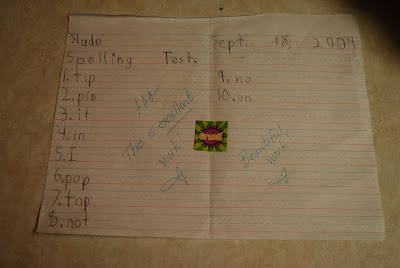 Slade Sept. 18, 2009
Spelling Test.
1. tip
2. pin
3. it
4. in
5. I
6. pop
7. top
8. not
9. no
10. on
100%
This is excellent
work!
Beautiful
work